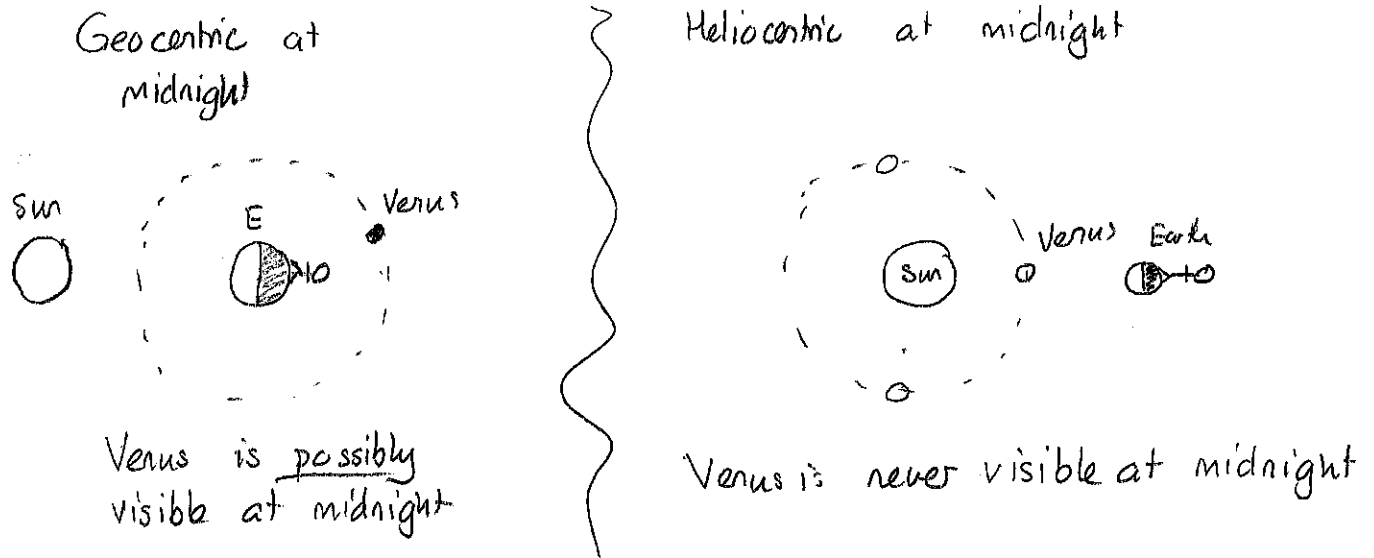 Geocentric at
midnight
Sun
E
Venus
Venus is possibly
visible at midnight
Heliocentric at midnight
Sun
Venus
Earth
Venus is never visible at midnight